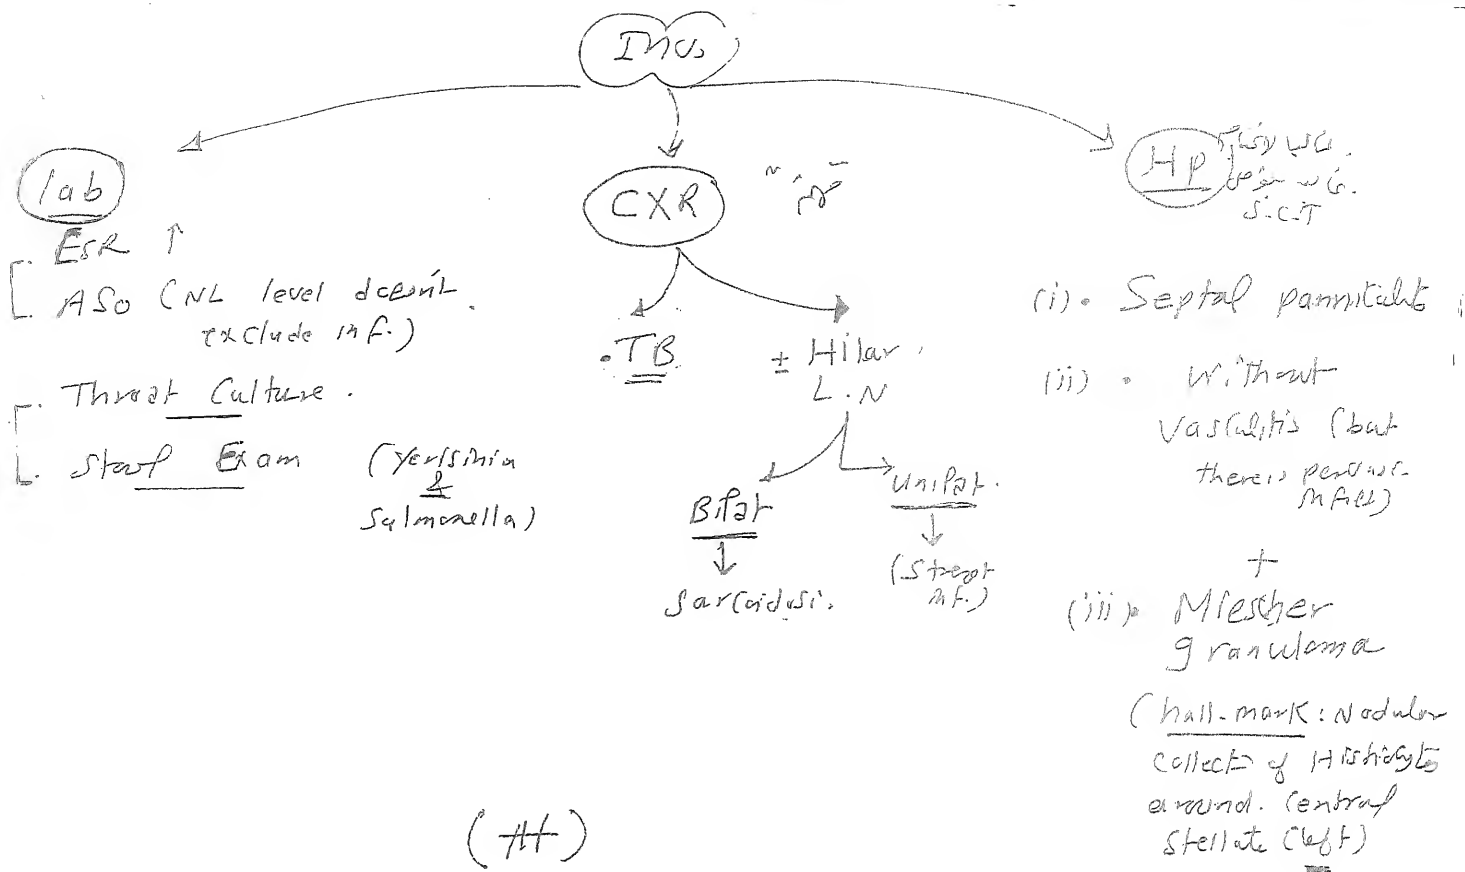 Invs
lab
ESR ↑
ASO (NL level doesn't
exclude inf.)
Throat Culture.
Stool Exam (Yerisinia
&
Salmonella)
CXR
TB
± Hilar
L.N
Bilat
↓
Sarcoidosi.
Unilat.
↓
(Strept
inf.)
Hp
S.C.T
(i). Septal panniculitis
(ii). Without
vasculitis (but
there is
+
(iii). Miescher
granuloma
(hall-mark: Nodular
collect of Histiocytes
around. Central
Stellate cleft)
(#)